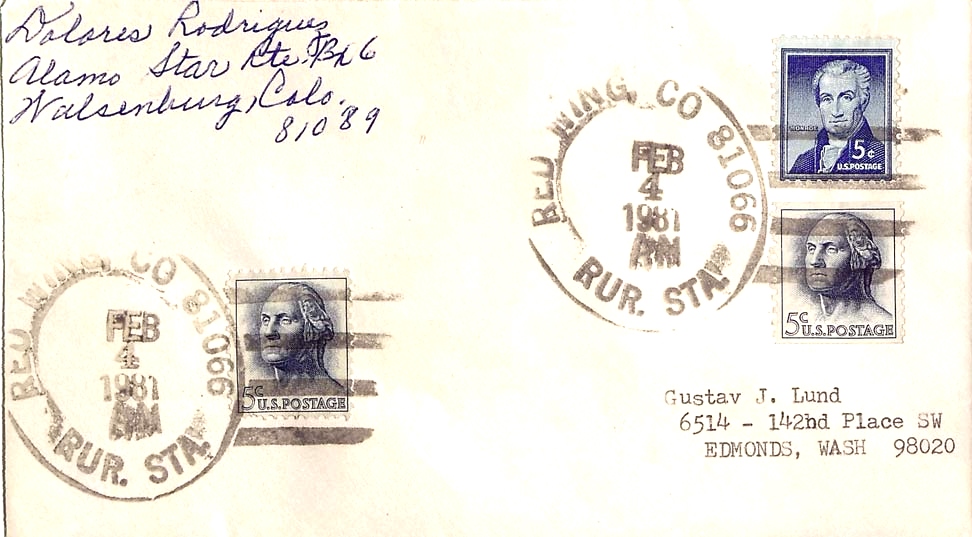 Dolores Rodriguez
Alamo Star Rte. Bx 6
Walsenburg, Colo.
81089
RED WING, CO 81066
FEB
4
1981
AM
RUR. STA.
MONROE
5¢
U.S.POSTAGE
5c U.S.POSTAGE
RED WING, CO 81066
FEB
4
1981
AM
RUR. STA.
5c U.S.POSTAGE
Gustav J. Lund
6514 - 142nd Place SW
EDMONDS, WASH 98020